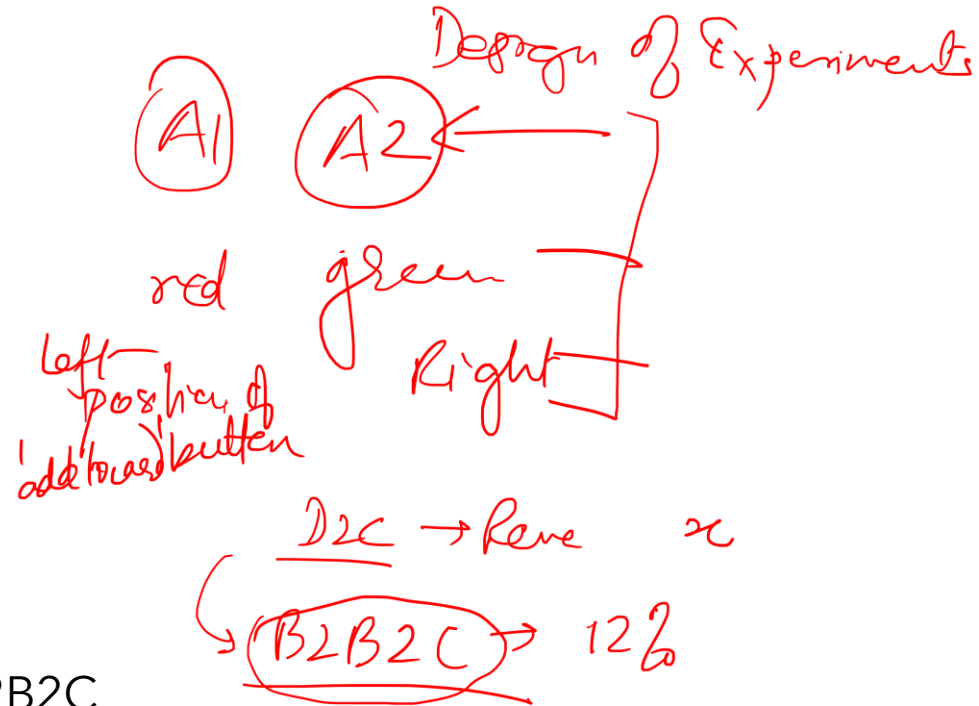 Design of Experiments
A1 A2
red green
Left Right
position of
add to card button
D2C → Reve x
B2B2C → 12%
B2C